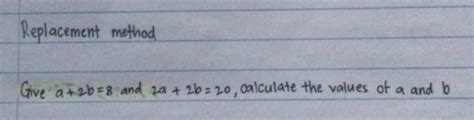 Replacement method
Give a+2b=8 and 2a + 2b = 20, calculate the values of a and b